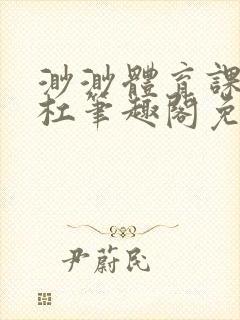 渺渺體育課
杜筆趣閣免
尹蔚民